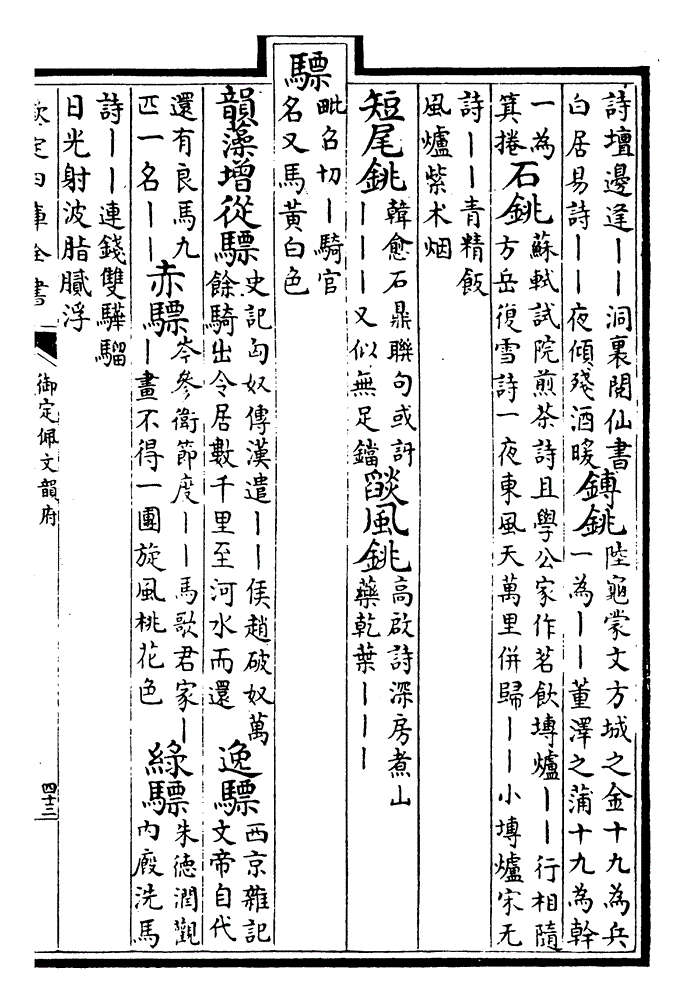 詩壇邊逢丨丨洞裏閱仙書
白居易詩丨丨夜傾殘酒暖
鎛銚
陸龜蒙文方城之金十九為兵
一為丨丨董澤之蒲十九為幹
一為
箕捲
石銚
蘇軾試院煎茶詩且學公家作茗飲塼爐丨丨行相隨
方岳復雪詩一夜東風天萬里併歸丨丨小塼爐宋无
詩丨丨青精飯
風爐紫术烟
短尾銚
韓愈石鼎聯句或訝
丨丨丨又似無足鐺
燄風銚
高啟詩深房煮山
藥乾葉丨丨丨
驃
毗召切丨騎官
名又馬黃白色
韻藻增從驃
史記匈奴傳漢遣丨丨侯趙破奴萬
餘騎出令居數千里至河水而還
逸驃
西京雜記
文帝自代
還有良馬九
匹一名丨丨
赤驃
岑參衛節度丨丨馬歌君家丨
丨畫不得一團旋風桃花色
綠驃
朱德潤觀
內廄洗馬
詩丨丨連錢雙驊騮
日光射波脂膩浮
欽定四庫全書
御定佩文韻府
四十三